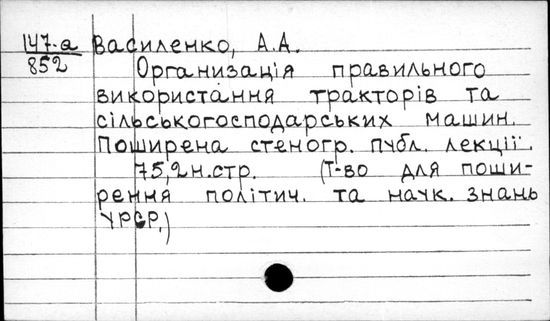 147-а Василенко, А.А.
852
Организація правильного
використання тракторів та
сільськогосподарських машин.
Поширена стеногр. публ. лекції.
75,2н.стр. (Т-во для поши-
рення політич. та наук. знань
УРСР.)